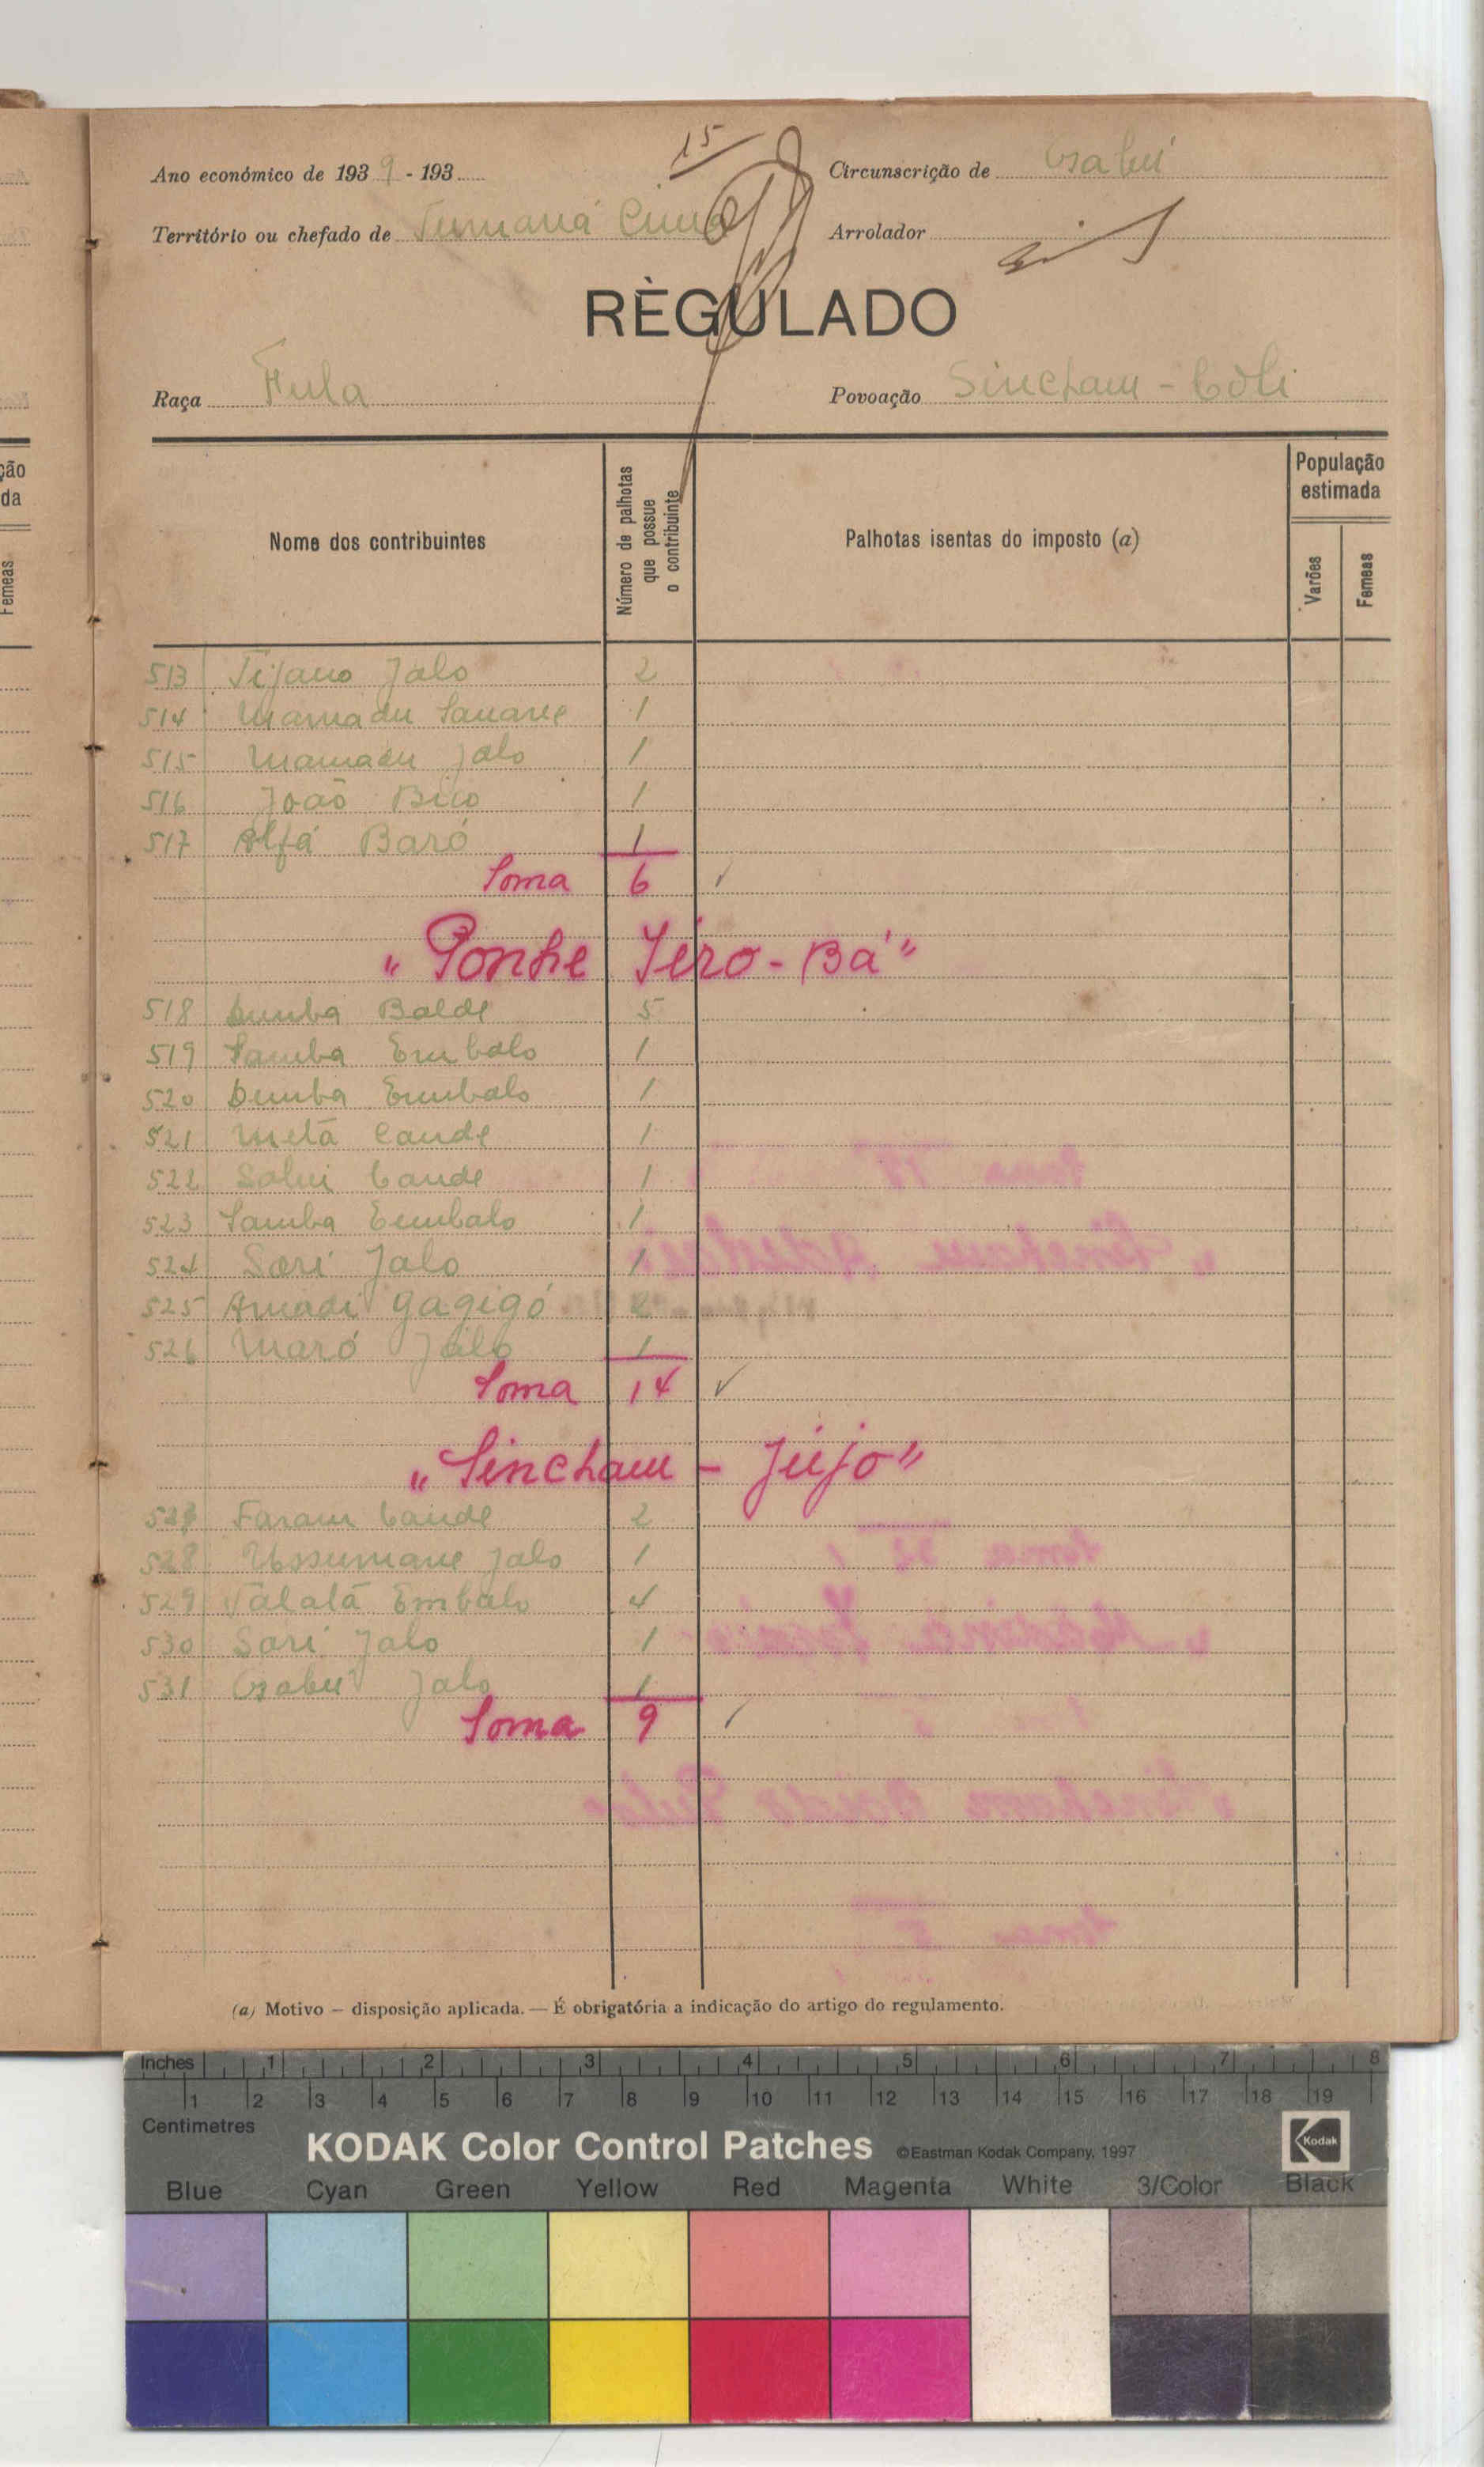 15
Ano económico de 1939 - 193
Circunscrição de Gabú
Território ou chefado de Tumaná Cima
Arrolador
RÈGULADO
Raça Fula
Povoação Sincham - Coli
Nome dos contribuintes
Número de palhotas que possue o contribuinte
Palhotas isentas do imposto (a)
População estimada
Varões
Femeas
513 Tijano Jalo 2
514 Mamadu Sanane 1
515 Mamadu Jalo 1
516 João Bico 1
517 Alfá Baró 1
Soma 6
"Ponhe Jéro-Bá"
518 Dumba Balde 5
519 Samba Embalo 1
520 Demba Embalo 1
521 Metá Cande 1
522 Cande 1
523 Samba Embalo 1
524 Sori Jalo 1
525 Amadi Gagigó 2
526 Maró Jalo 1
Soma 14
"Sincham - Jeijo"
527 Faram Cande 2
528 Ussumane Jalo 1
529 Talatá Embalo 4
530 Sori Jalo 1
531 Gabú Jalo 1
Soma 9
(a) Motivo — disposição aplicada. — É obrigatória a indicação do artigo do regulamento.
ção
da
Femeas
Inches 1 2 3 4 5 6 7 8
1 2 3 4 5 6 7 8 9 10 11 12 13 14 15 16 17 18 19
Centimetres
KODAK Color Control Patches ©Eastman Kodak Company, 1997 Kodak
Blue Cyan Green Yellow Red Magenta White 3/Color Black